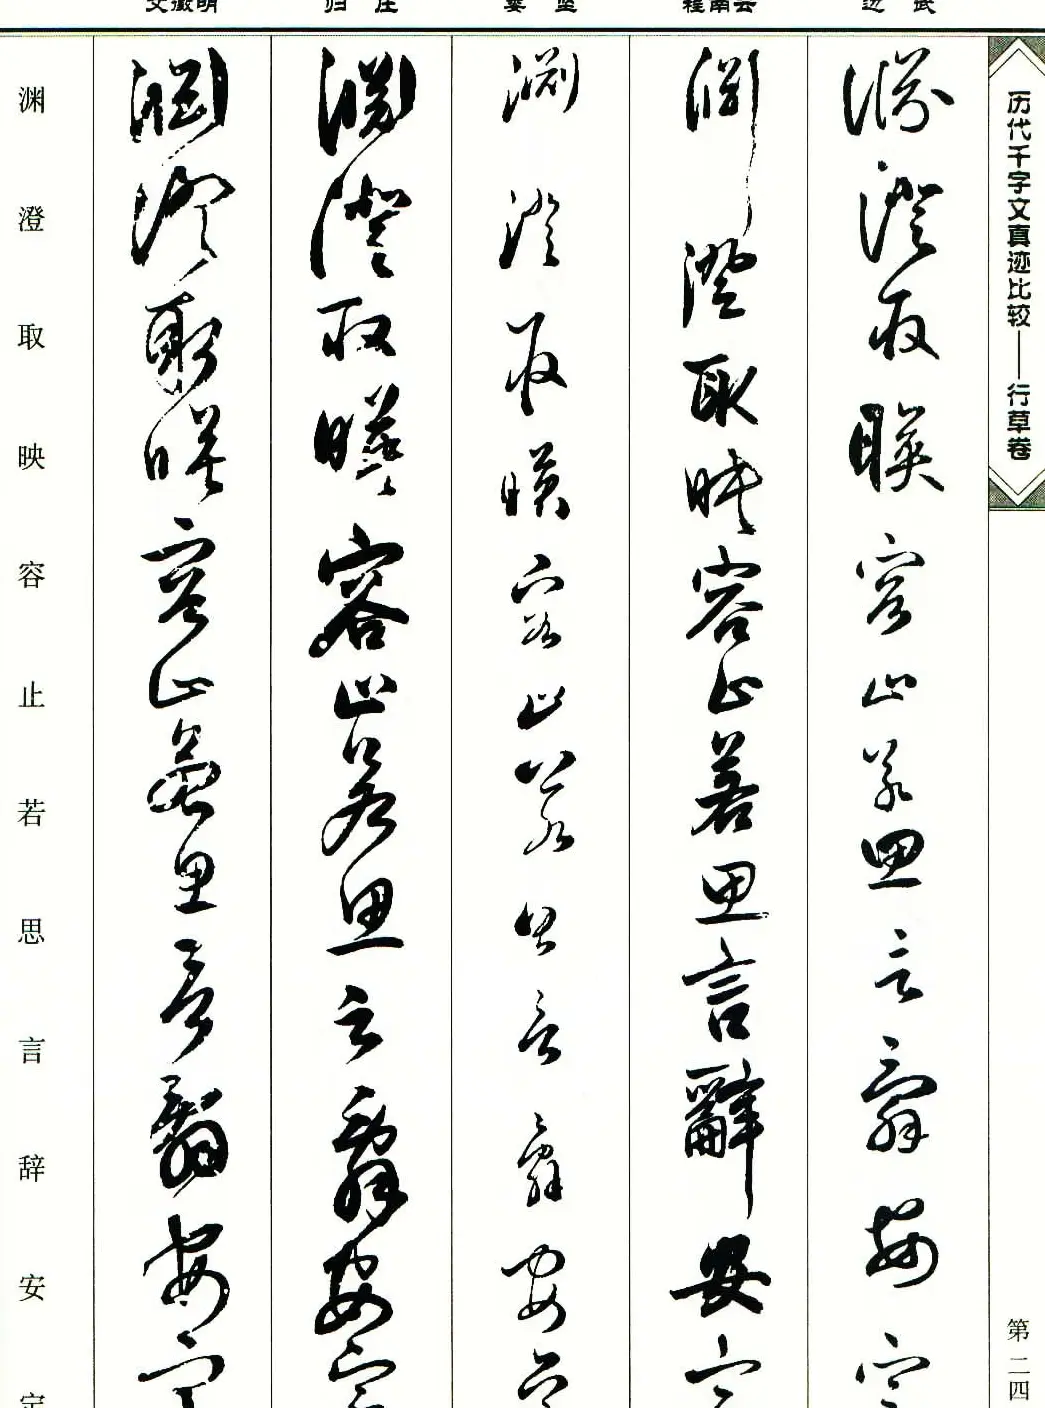 历代千字文真迹比较——行草卷
第二四
边武
淵澄取暎容止若思言辭安定
程南云
淵澄取映容止若思言辭安定
娄坚
淵澄取暎容止若思言辭安定
归庄
淵澄取暎容止若思言辭安定
文徵明
淵澄取暎容止若思言辭安定
渊澄取映容止若思言辞安定